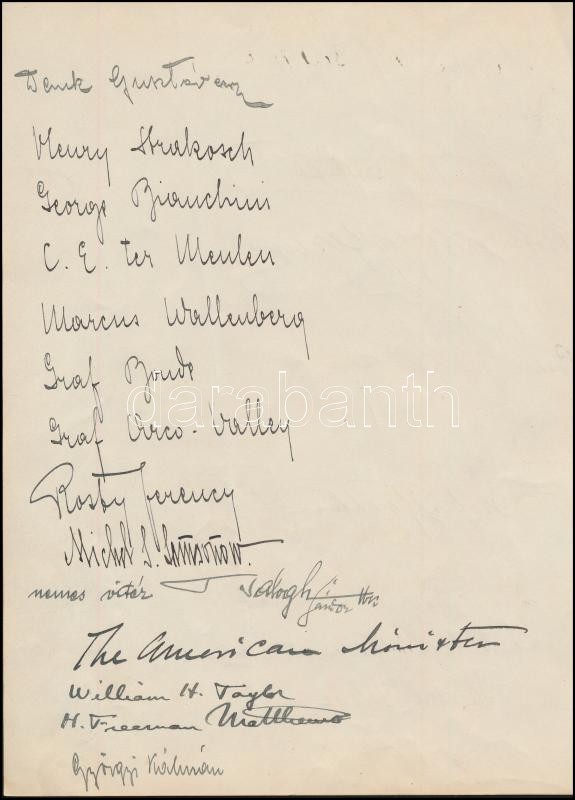 Denk Gusztáv
Henry Strakosch
George Bianchini
C. E. ter Meulen
Marcus Wallenberg
Graf Bonde
darabanth
Graf Arco-Valley
Ferency
Michel S.
nemes vitéz Balogh Sándor
The American Minister
William H. Taylor
H. Freeman Matthews
Györgyi Kálmán